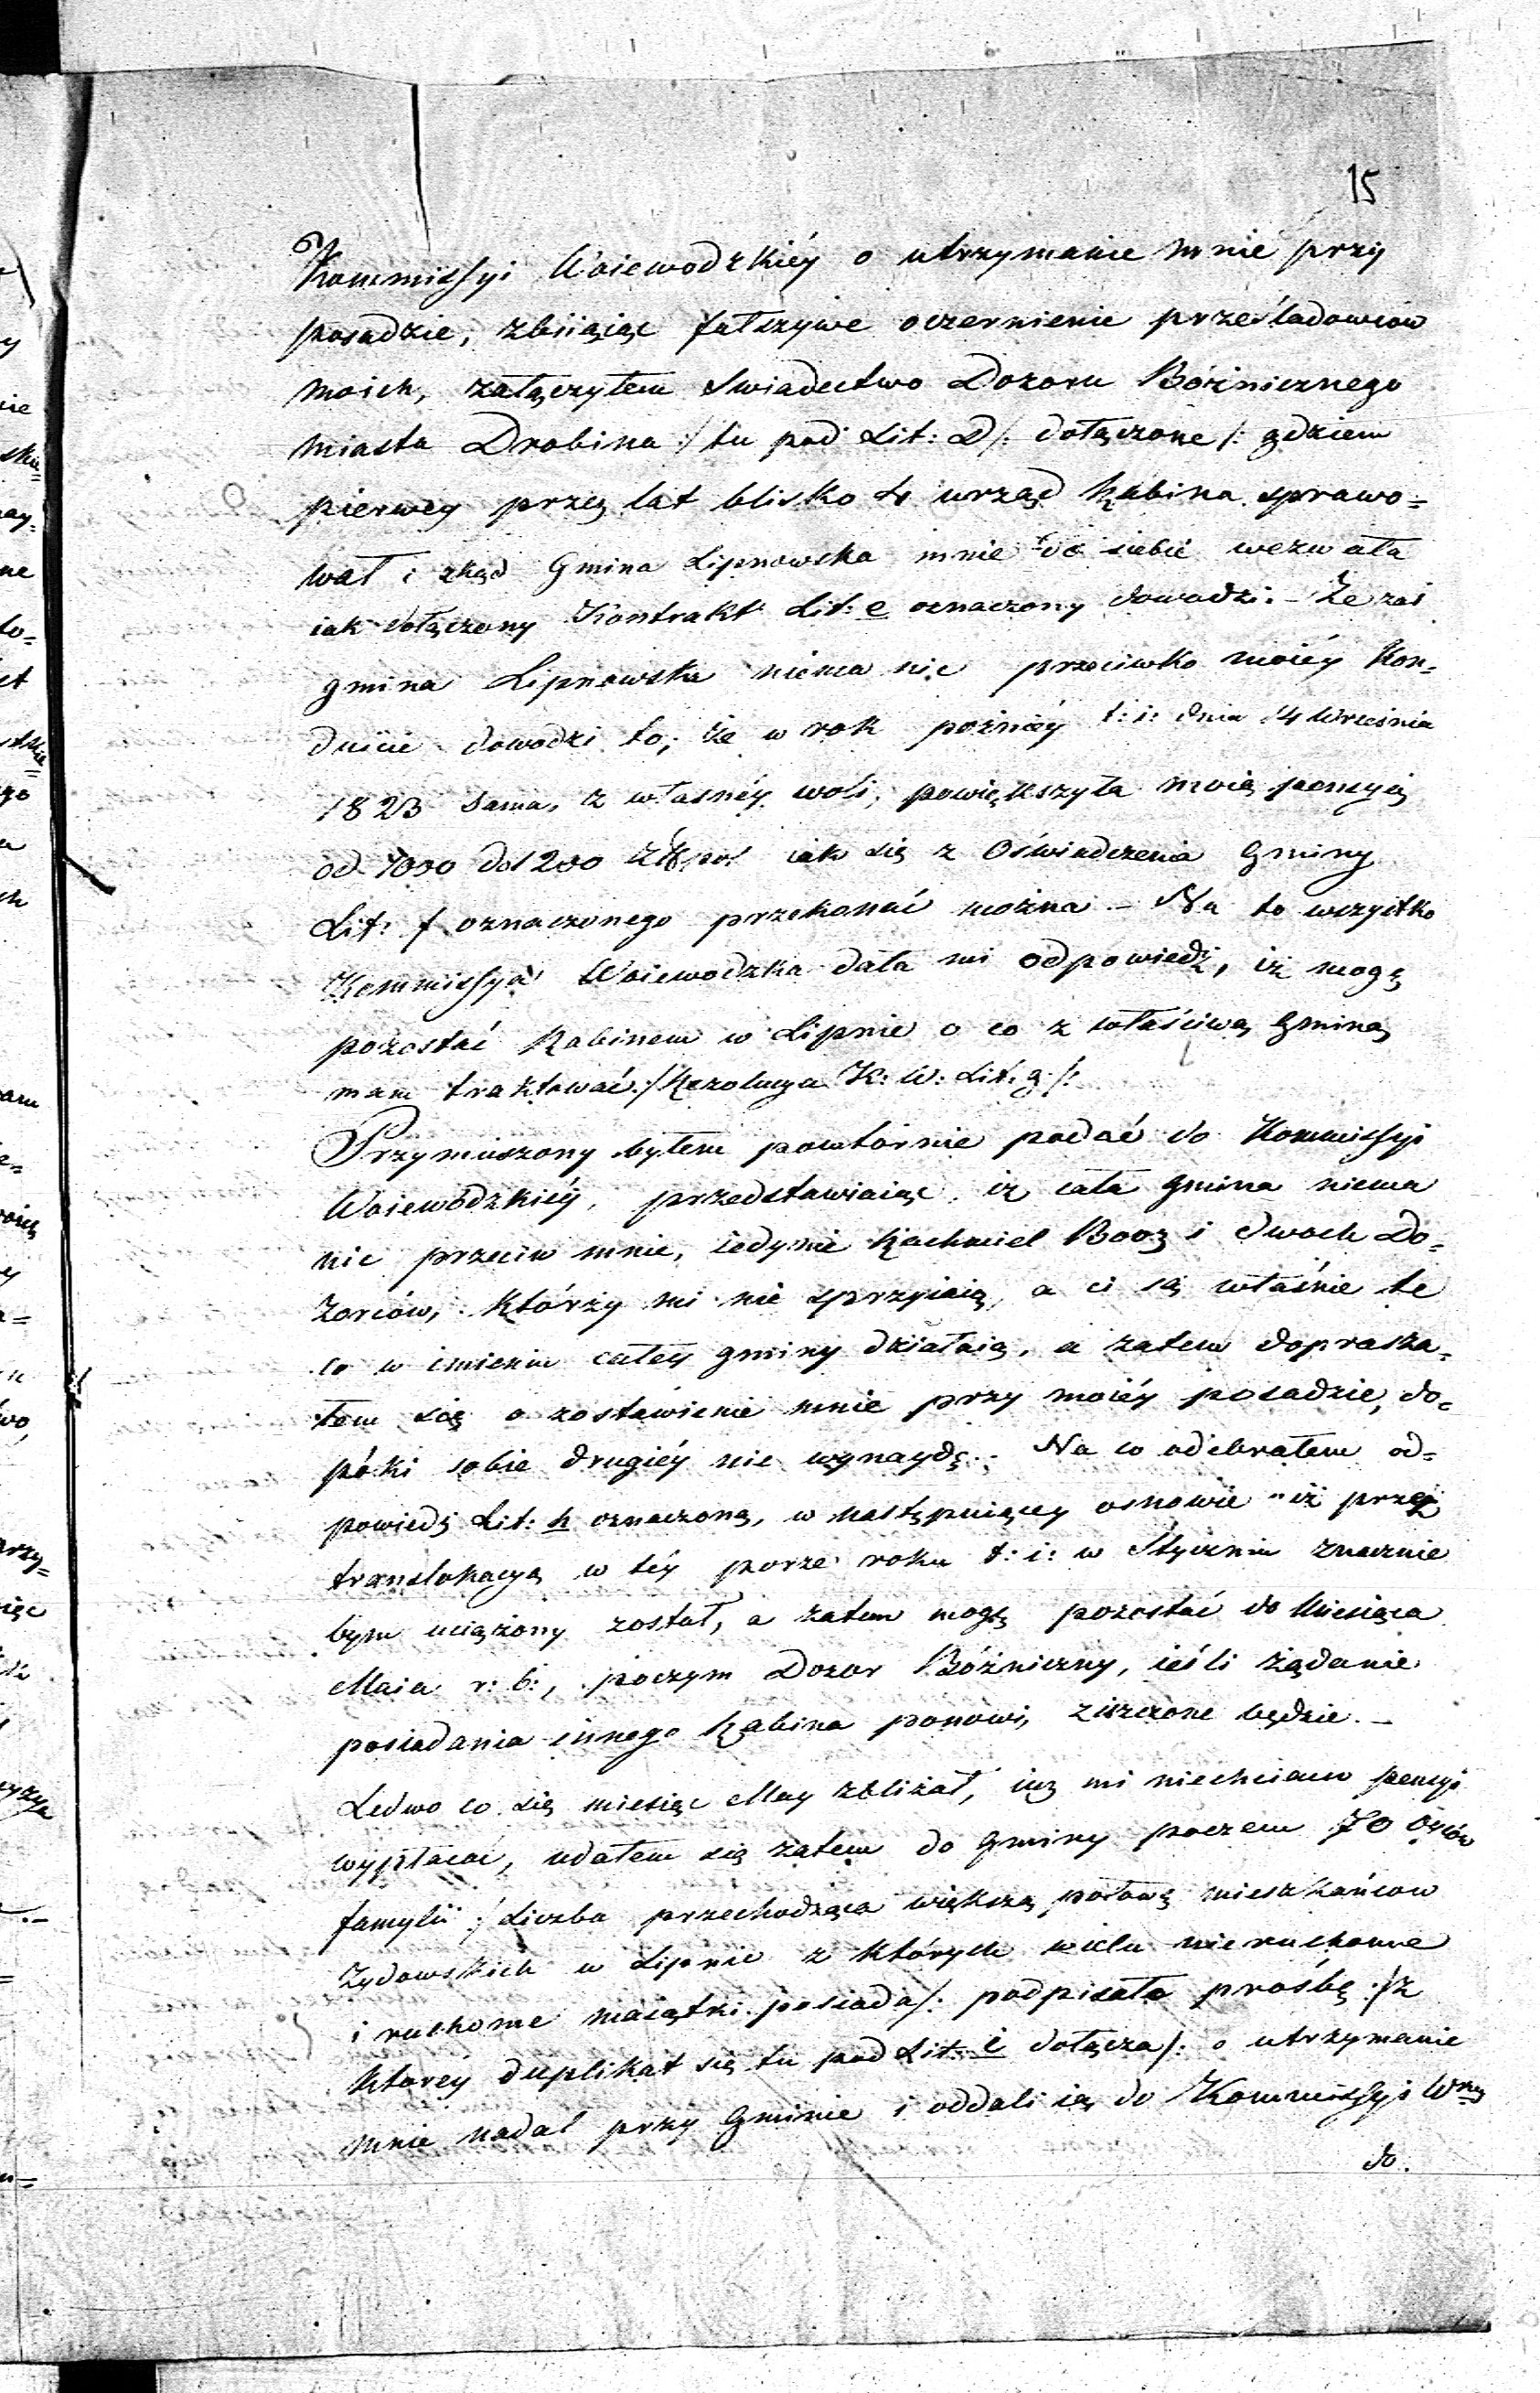 15
Kommissyi Woiewodzkiéy o utrzymanie mnie przy
posadzie, zbiiaiąc fałszywe oczernienie prześladowców
moich, załączyłem Swiadectwo Dozoru Bóżnicznego
miasta Drobina :/ tu pod Lit: D/: dołączone /: gdziem
pierwey przez lat blisko 4 urząd Rabina sprawo=
wał i zkąd Gmina Lipnowska mnie do siebie wezwała
iak dołączony Kontrakt Lit: e oznaczony dowodzi. – Że zaś
gmina Lipnowska niema nic przeciwko moiéy Kon=
duicie dowodzi to, że w rok poźniéy t: i: dnia 14 Września
1823 sama, z własnéy woli, powiększyła moią pensyią
od 1000 do 1200 Złł pol iak się z Oświadczenia Gminy
Lit: f oznaczonego przekonać można – Na to wszystko
Kommissya Woiewodzka dała mi odpowiedź, iż mogę
pozostać Rabinem w Lipnie o co z właściwą Gminą
mam traktować :/ Rezolucya K: W: Lit: g /:
Przymuszony byłem powtórnie podać do Kommissyi
Woiewódzkiéy, przedstawiaiąc, iż cała gmina niema
nic przeciw mnie, iedynie Rachmiel Booz i dwoch Do=
zorców, którzy mi nie sprzyiaią, a ci są właśnie te
co w imieniu całey gminy działaią, a zatem doprasza=
łem się o zostawienie mnie przy moiéy posadzie, do=
póki sobie drugiéy nie wynaydę. – Na co odebrałem od=
powiedź Lit: h oznaczoną, w następuiącey osnowie "iż przez
translokacyą w téy porze roku t: i: w Styczniu znacznie
bym uciążony został, a zatem mogę pozostać do Miesiąca
Maia r: b:, poczym Dozor Bóżniczny, ieśli żądanie
posiadania innego Rabina ponowi, ziszczone będzie. –
Ledwo co się miesiąc May zbliżał, iuż mi niechciano pensyi
wypłacać, udałem się zatem do Gminy poczem 70 Oyców
familii :/ Liczba przechodząca większą połowę mieszkańcow
Żydowskich w Lipnie z których wielu nieruchome
i ruchome maiątki posiada /: podpisało prośbę :/ z
którey duplikat się tu pod Lit: i dołącza /: o utrzymanie
mnie nadal przy Gminie i oddali ią do Kommissyi Wkiéy
do.